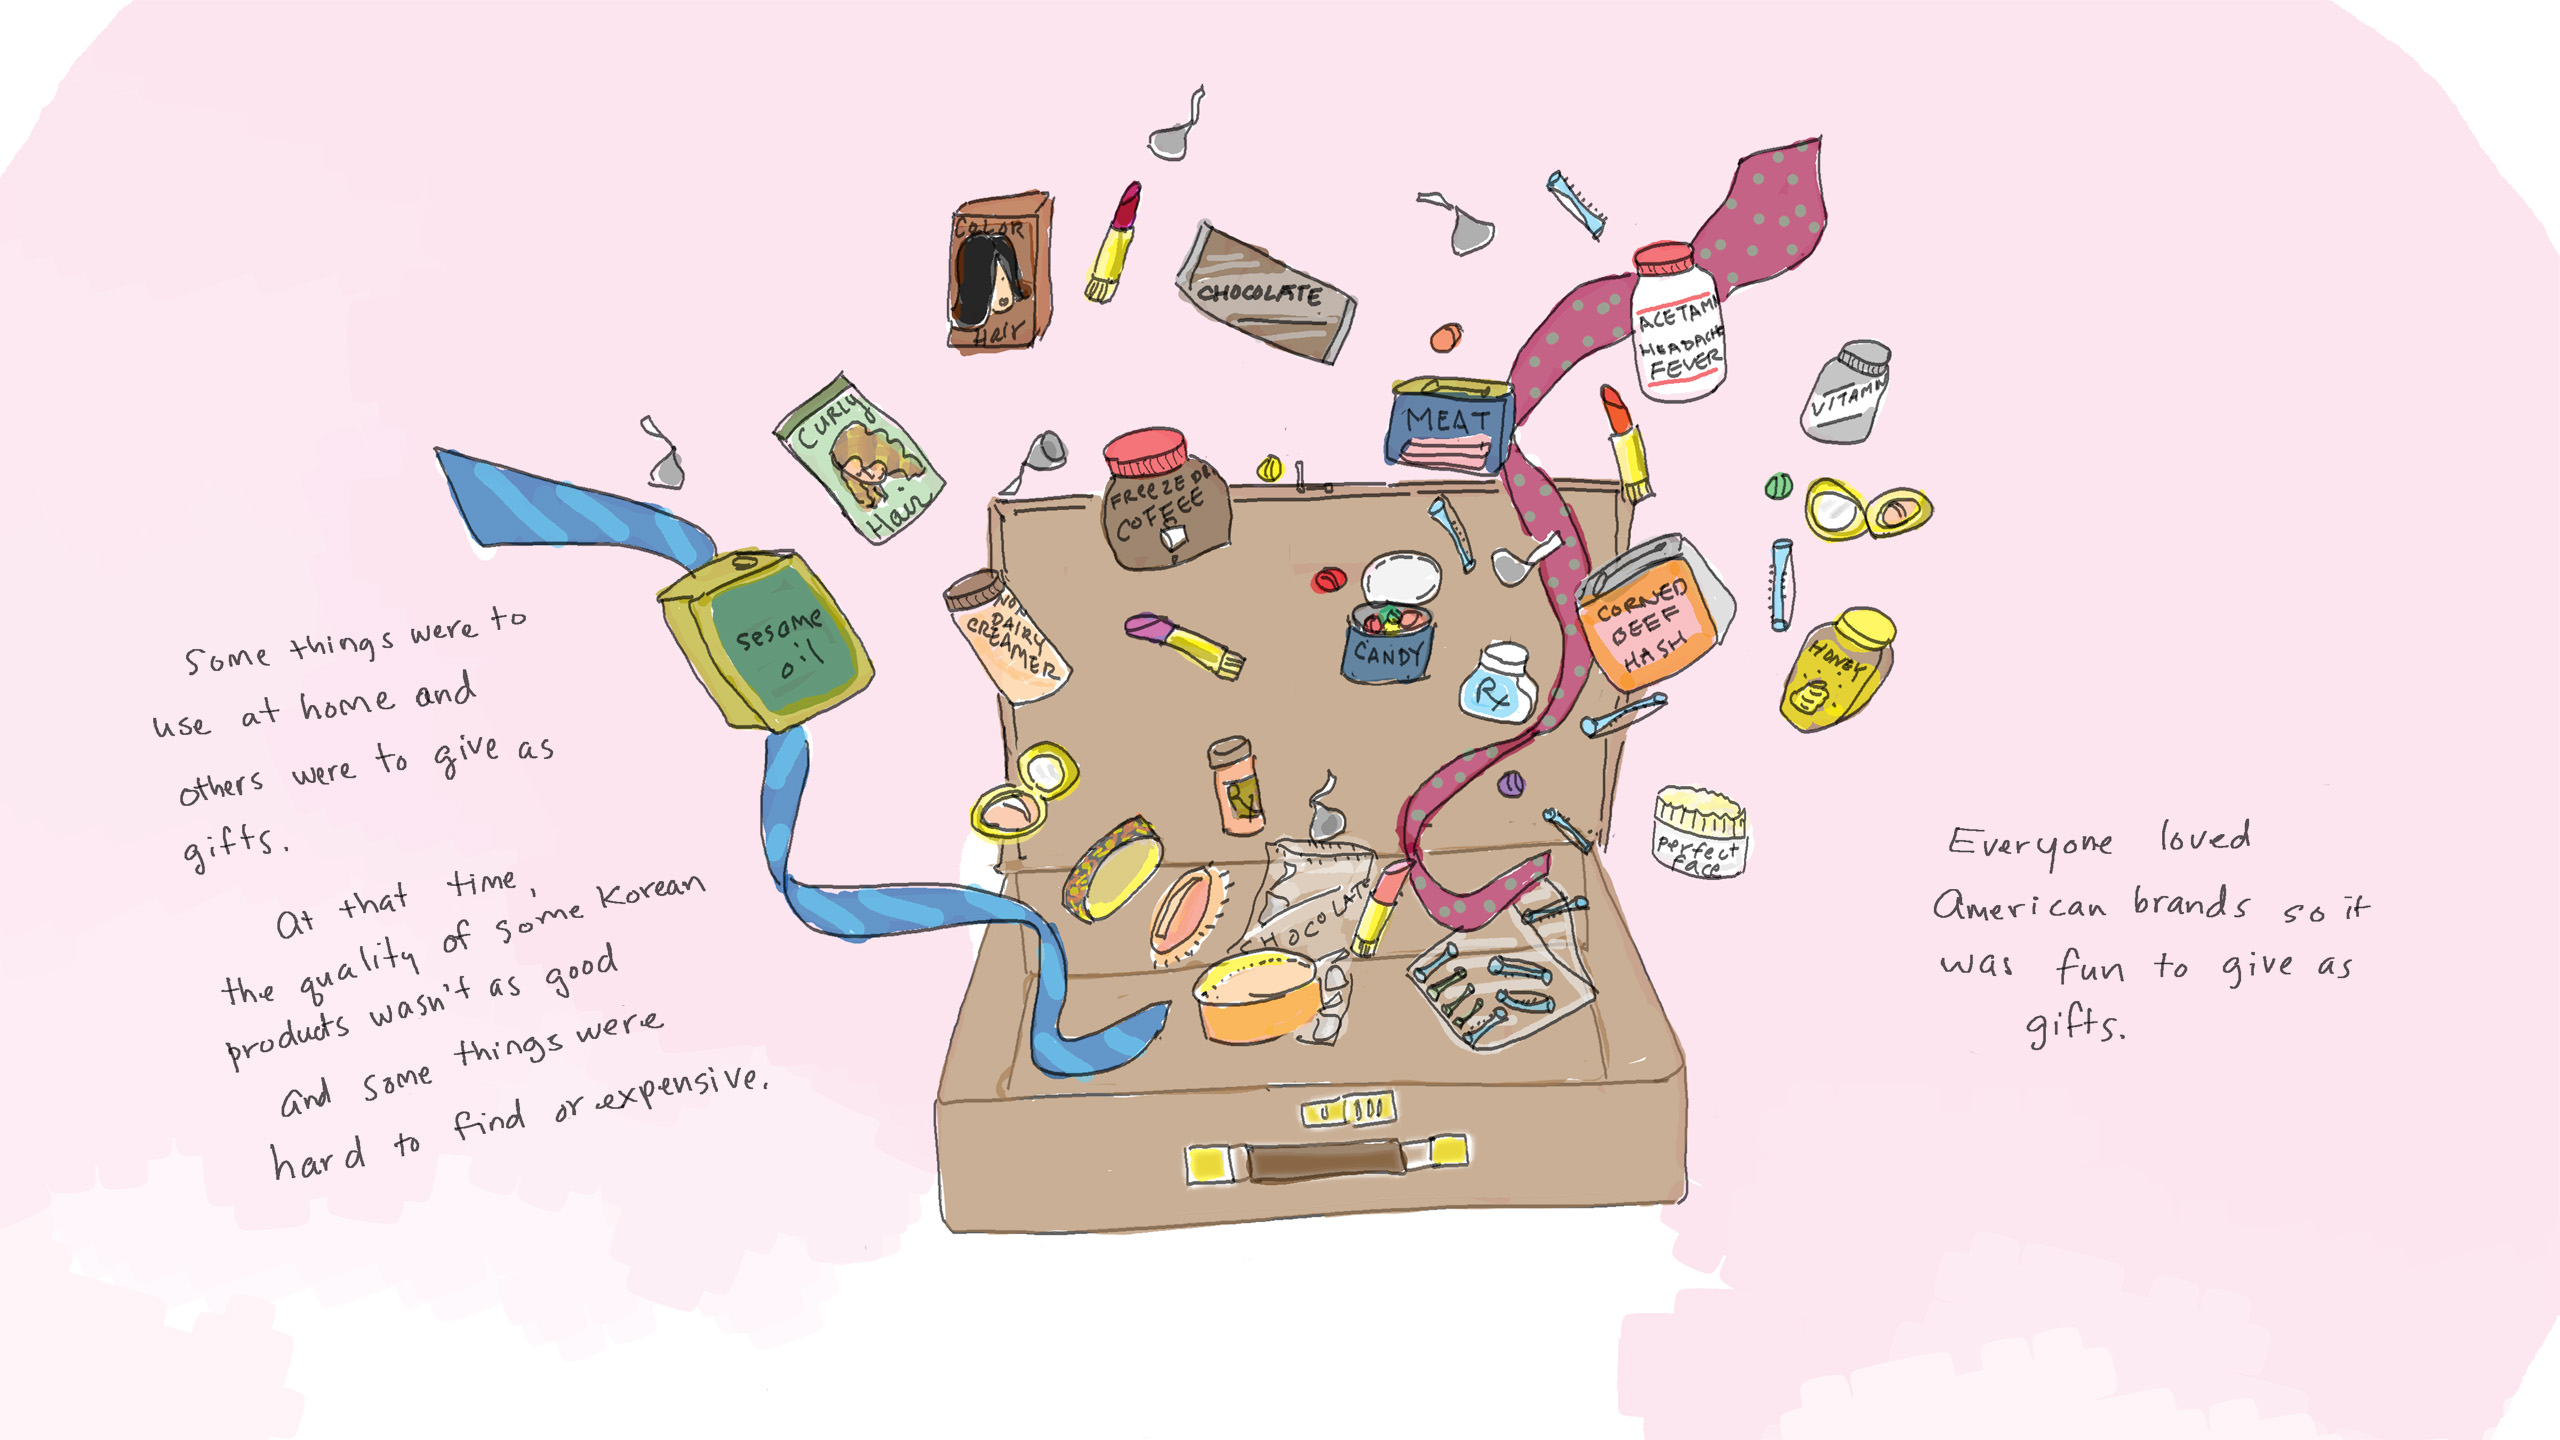 Some things were to
use at home and
others were to give as
gifts.
At that time,
the quality of some Korean
products wasn't as good
and some things were
hard to find or expensive.
COLOR
Hair
CHOCOLATE
ACETAM
HEADACHE
FEVER
VITAMN
CURLY
Hair
MEAT
FREEZE DR
COFEEE
sesame
oil
NON
DAIRY
CREAMER
CANDY
Rx
CORNED
BEEF
HASH
HONEY
Rx
perfect
FACE
CHOCOLATE
Everyone loved
American brands so it
was fun to give as
gifts.